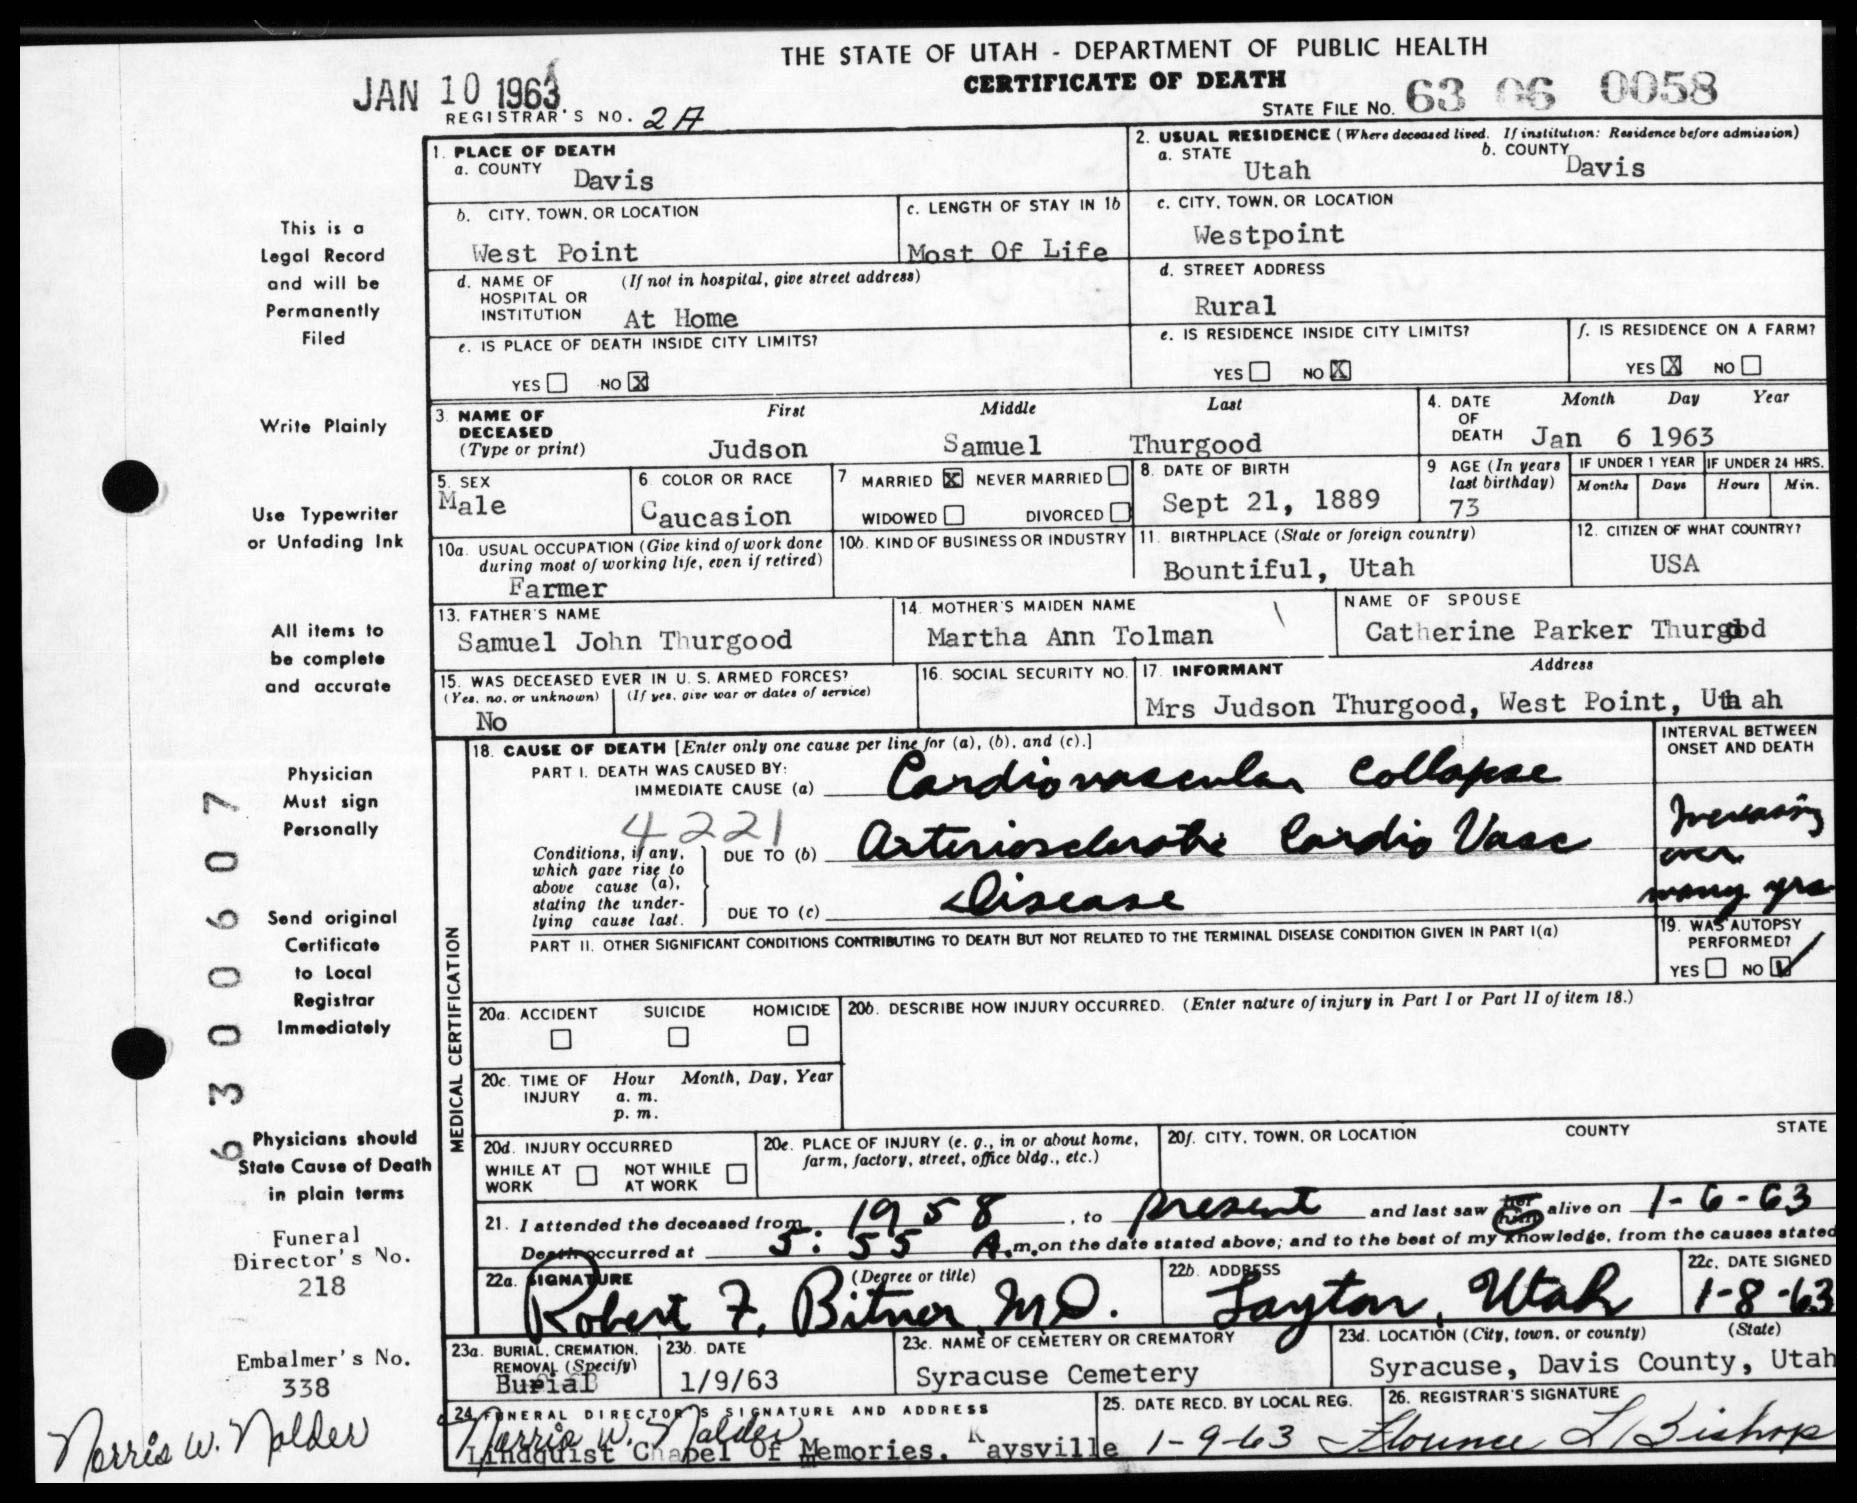 THE STATE OF UTAH - DEPARTMENT OF PUBLIC HEALTH
CERTIFICATE OF DEATH
JAN 10 1963
REGISTRAR'S NO. 2A
STATE FILE NO. 63 06 0058
1. PLACE OF DEATH
a. COUNTY Davis
2. USUAL RESIDENCE (Where deceased lived. If institution: Residence before admission)
a. STATE Utah b. COUNTY Davis
b. CITY, TOWN, OR LOCATION West Point
c. LENGTH OF STAY IN 1b Most Of Life
c. CITY, TOWN, OR LOCATION Westpoint
d. NAME OF HOSPITAL OR INSTITUTION (If not in hospital, give street address) At Home
d. STREET ADDRESS Rural
e. IS PLACE OF DEATH INSIDE CITY LIMITS?
YES NO X
e. IS RESIDENCE INSIDE CITY LIMITS?
YES NO X
f. IS RESIDENCE ON A FARM?
YES X NO
3. NAME OF DECEASED (Type or print)
First Middle Last
Judson Samuel Thurgood
4. DATE OF DEATH Month Day Year
Jan 6 1963
5. SEX Male
6. COLOR OR RACE Caucasion
7 MARRIED X NEVER MARRIED
WIDOWED DIVORCED
8. DATE OF BIRTH Sept 21, 1889
9 AGE (In years last birthday) 73
IF UNDER 1 YEAR Months Days
IF UNDER 24 HRS. Hours Min.
10a. USUAL OCCUPATION (Give kind of work done during most of working life, even if retired) Farmer
10b. KIND OF BUSINESS OR INDUSTRY
11. BIRTHPLACE (State or foreign country) Bountiful, Utah
12. CITIZEN OF WHAT COUNTRY? USA
13. FATHER'S NAME Samuel John Thurgood
14. MOTHER'S MAIDEN NAME Martha Ann Tolman
NAME OF SPOUSE Catherine Parker Thurgood
15. WAS DECEASED EVER IN U. S. ARMED FORCES?
(Yes, no, or unknown) (If yes, give war or dates of service)
No
16. SOCIAL SECURITY NO.
17. INFORMANT Address
Mrs Judson Thurgood, West Point, Utah
MEDICAL CERTIFICATION
18. CAUSE OF DEATH [Enter only one cause per line for (a), (b), and (c).]
INTERVAL BETWEEN ONSET AND DEATH
PART I. DEATH WAS CAUSED BY:
IMMEDIATE CAUSE (a) Cardiovascular Collapse
4221
Conditions, if any, which gave rise to above cause (a), stating the underlying cause last.
DUE TO (b) Arteriosclerotic Cardio Vasc
DUE TO (c) Disease
Increasing
over
many yrs
PART II. OTHER SIGNIFICANT CONDITIONS CONTRIBUTING TO DEATH BUT NOT RELATED TO THE TERMINAL DISEASE CONDITION GIVEN IN PART I(a)
19. WAS AUTOPSY PERFORMED?
YES NO ✓
20a. ACCIDENT SUICIDE HOMICIDE
20b. DESCRIBE HOW INJURY OCCURRED. (Enter nature of injury in Part I or Part II of item 18.)
20c. TIME OF INJURY Hour Month, Day, Year
a. m.
p. m.
20d. INJURY OCCURRED
WHILE AT WORK NOT WHILE AT WORK
20e. PLACE OF INJURY (e. g., in or about home, farm, factory, street, office bldg., etc.)
20f. CITY, TOWN, OR LOCATION COUNTY STATE
21. I attended the deceased from 1958, to present and last saw her him alive on 1-6-63
Death occurred at 5:55 A.m, on the date stated above; and to the best of my knowledge, from the causes stated
22a. SIGNATURE (Degree or title) Robert F. Bitner, M.D.
22b. ADDRESS Layton, Utah
22c. DATE SIGNED 1-8-63
23a. BURIAL, CREMATION, REMOVAL (Specify) Burial
23b. DATE 1/9/63
23c. NAME OF CEMETERY OR CREMATORY Syracuse Cemetery
23d. LOCATION (City, town, or county) (State)
Syracuse, Davis County, Utah
24 FUNERAL DIRECTOR'S SIGNATURE AND ADDRESS
Norris W. Nalder
Lindquist Chapel Of Memories. Kaysville
25. DATE RECD. BY LOCAL REG. 1-9-63
26. REGISTRAR'S SIGNATURE Flounce L Bishop
This is a
Legal Record
and will be
Permanently
Filed
Write Plainly
Use Typewriter
or Unfading Ink
All items to
be complete
and accurate
Physician
Must sign
Personally
Send original
Certificate
to Local
Registrar
Immediately
6300607
Physicians should
State Cause of Death
in plain terms
Funeral
Director's No.
218
Embalmer's No.
338
Norris W. Nalder